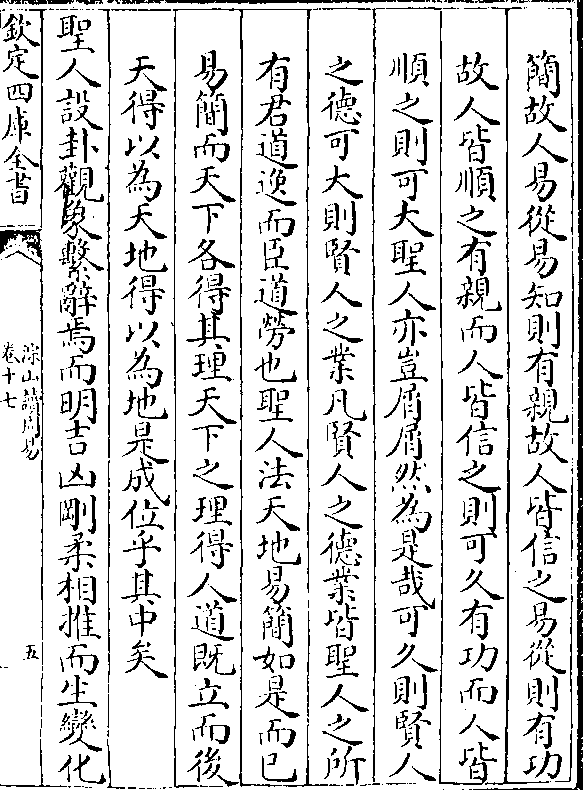 簡故人易從易知則有親故人皆信之易從則有功
故人皆順之有親而人皆信之則可久有功而人皆
順之則可大聖人亦豈屑屑然為是哉可久則賢人
之德可大則賢人之業凡賢人之德業皆聖人之所
有君道逸而臣道勞也聖人法天地易簡如是而已
易簡而天下各得其理天下之理得人道既立而後
天得以為天地得以為地是成位乎其中矣
聖人設卦觀象繫辭焉而明吉凶剛柔相推而生變化
欽定四庫全書
淙山讀周易
卷十七
五